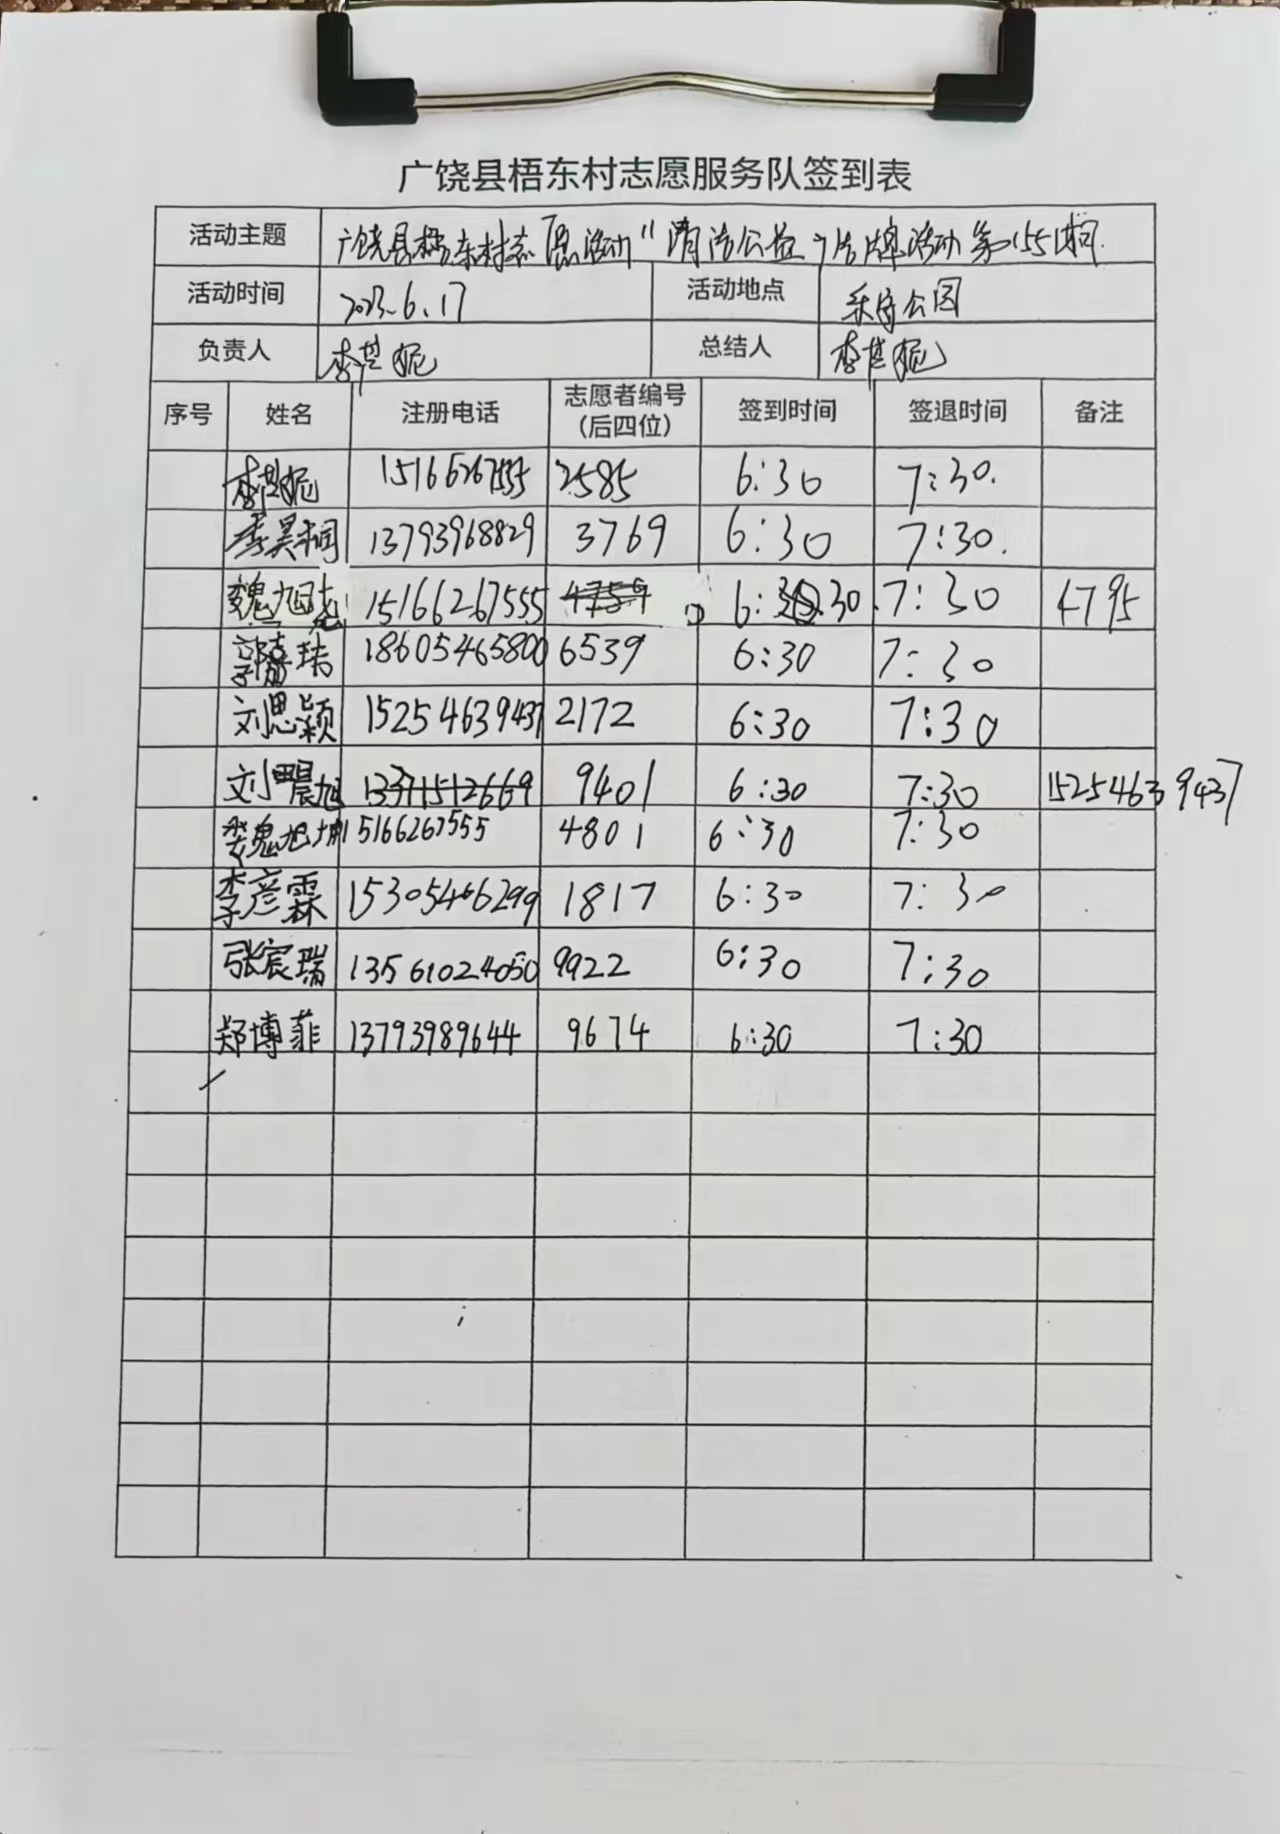 广饶县梧东村志愿服务队签到表
活动主题 广饶县梧东村志愿活动"清洁公益"品牌活动第(55)期
活动时间 2023.6.17 活动地点 乐安公园
负责人 李芷妮 总结人 李芷妮
序号 姓名 注册电话 志愿者编号(后四位) 签到时间 签退时间 备注
李芷妮 15166267555 2585 6:30 7:30.
李昊桐 13793968829 3769 6:30 7:30.
魏旭 15166267555 6:30 7:30 4795
郭 18605465800 6539 6:30 7:30
刘思颖 15254639437 2172 6:30 7:30
刘晨旭 13371512669 9401 6:30 7:30 15254639437
魏旭 15166267555 4801 6:30 7:30
李彦霖 15305466299 1817 6:30 7:30
张宸瑞 13561024050 9922 6:30 7:30
郑博菲 13793989644 9674 6:30 7:30